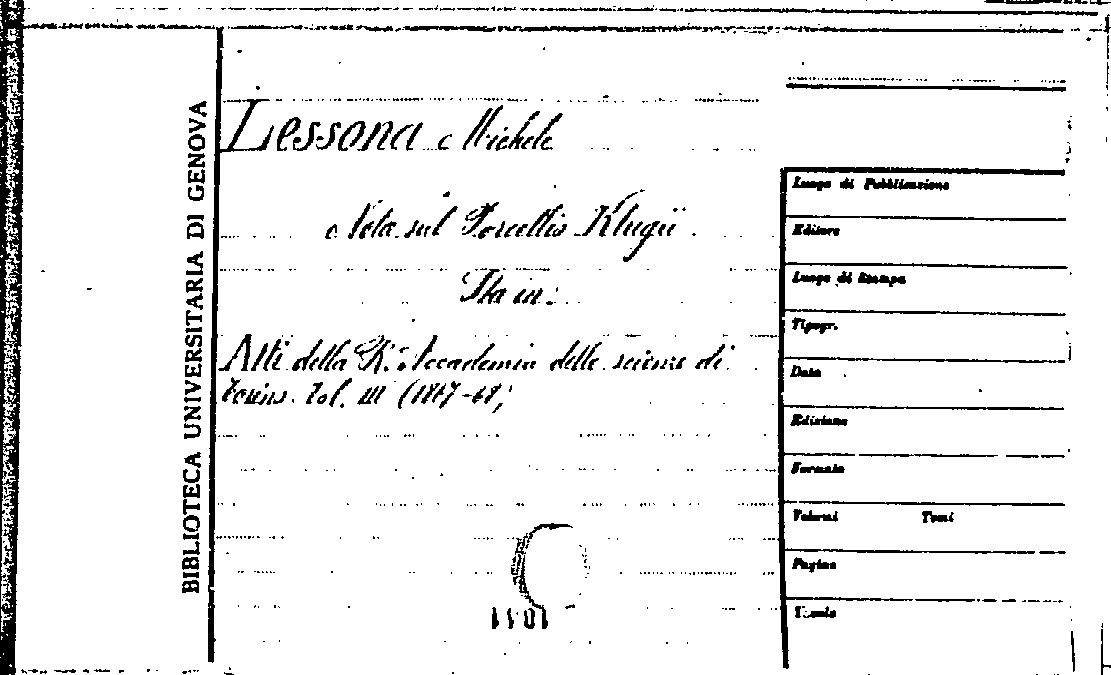 BIBLIOTECA UNIVERSITARIA DI GENOVA
Lessona Michele
Nota sul Porcellio Klugii
Sta in:
Atti della R. Accademia delle scienze di
Torino. Vol. III (1867-68)
Luogo di Pubblicazione
Editore
Luogo di Stampa
Tipogr.
Data
Edizione
Formato
Volumi Tomi
Pagine
Tavole